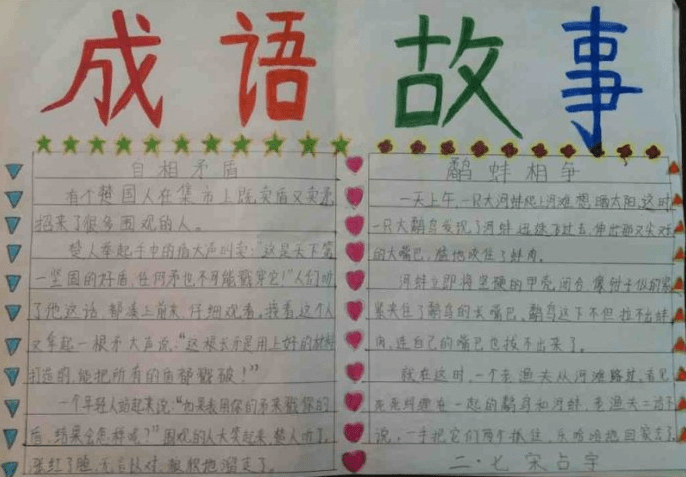 成语故事
自相矛盾
有个楚国人在集市上既卖盾又卖矛
招来了很多围观的人。
楚人举起手中的盾大声叫卖:"这是天下第
一坚固的好盾,任何矛也不可能戳穿它!"人们听
了他这话,都凑上前来,仔细观看。接着,这个人
又拿起一根矛大声说:"这根长矛是用上好的材料
打造的,能把所有的盾都戳破!"
一个年轻人站起来说:"如果我用你的矛来戳你的
盾,结果会怎样呢?"围观的人大笑起来,楚人听了,
张红了脸,无言以对,地溜走了。
鹬蚌相争
一天上午,一只大河蚌爬上河滩想晒太阳,这时
一只大鹬鸟发现了河蚌,过去,伸出那又尖又长
的大嘴巴,猛地咬住了蚌肉。
河蚌立即将坚硬的甲壳闭合,像钳子似的紧
紧夹住了鹬鸟的长嘴巴,鹬鸟这下不但拉不出蚌
肉,连自己的嘴巴也拔不出来了。
就在这时,一个老渔夫从河滩路过,看见
在一起的鹬鸟和河蚌,老渔夫二话不
说,一手把它们两个抓住,乐哈哈地回家去了。
二·七 宋占宇